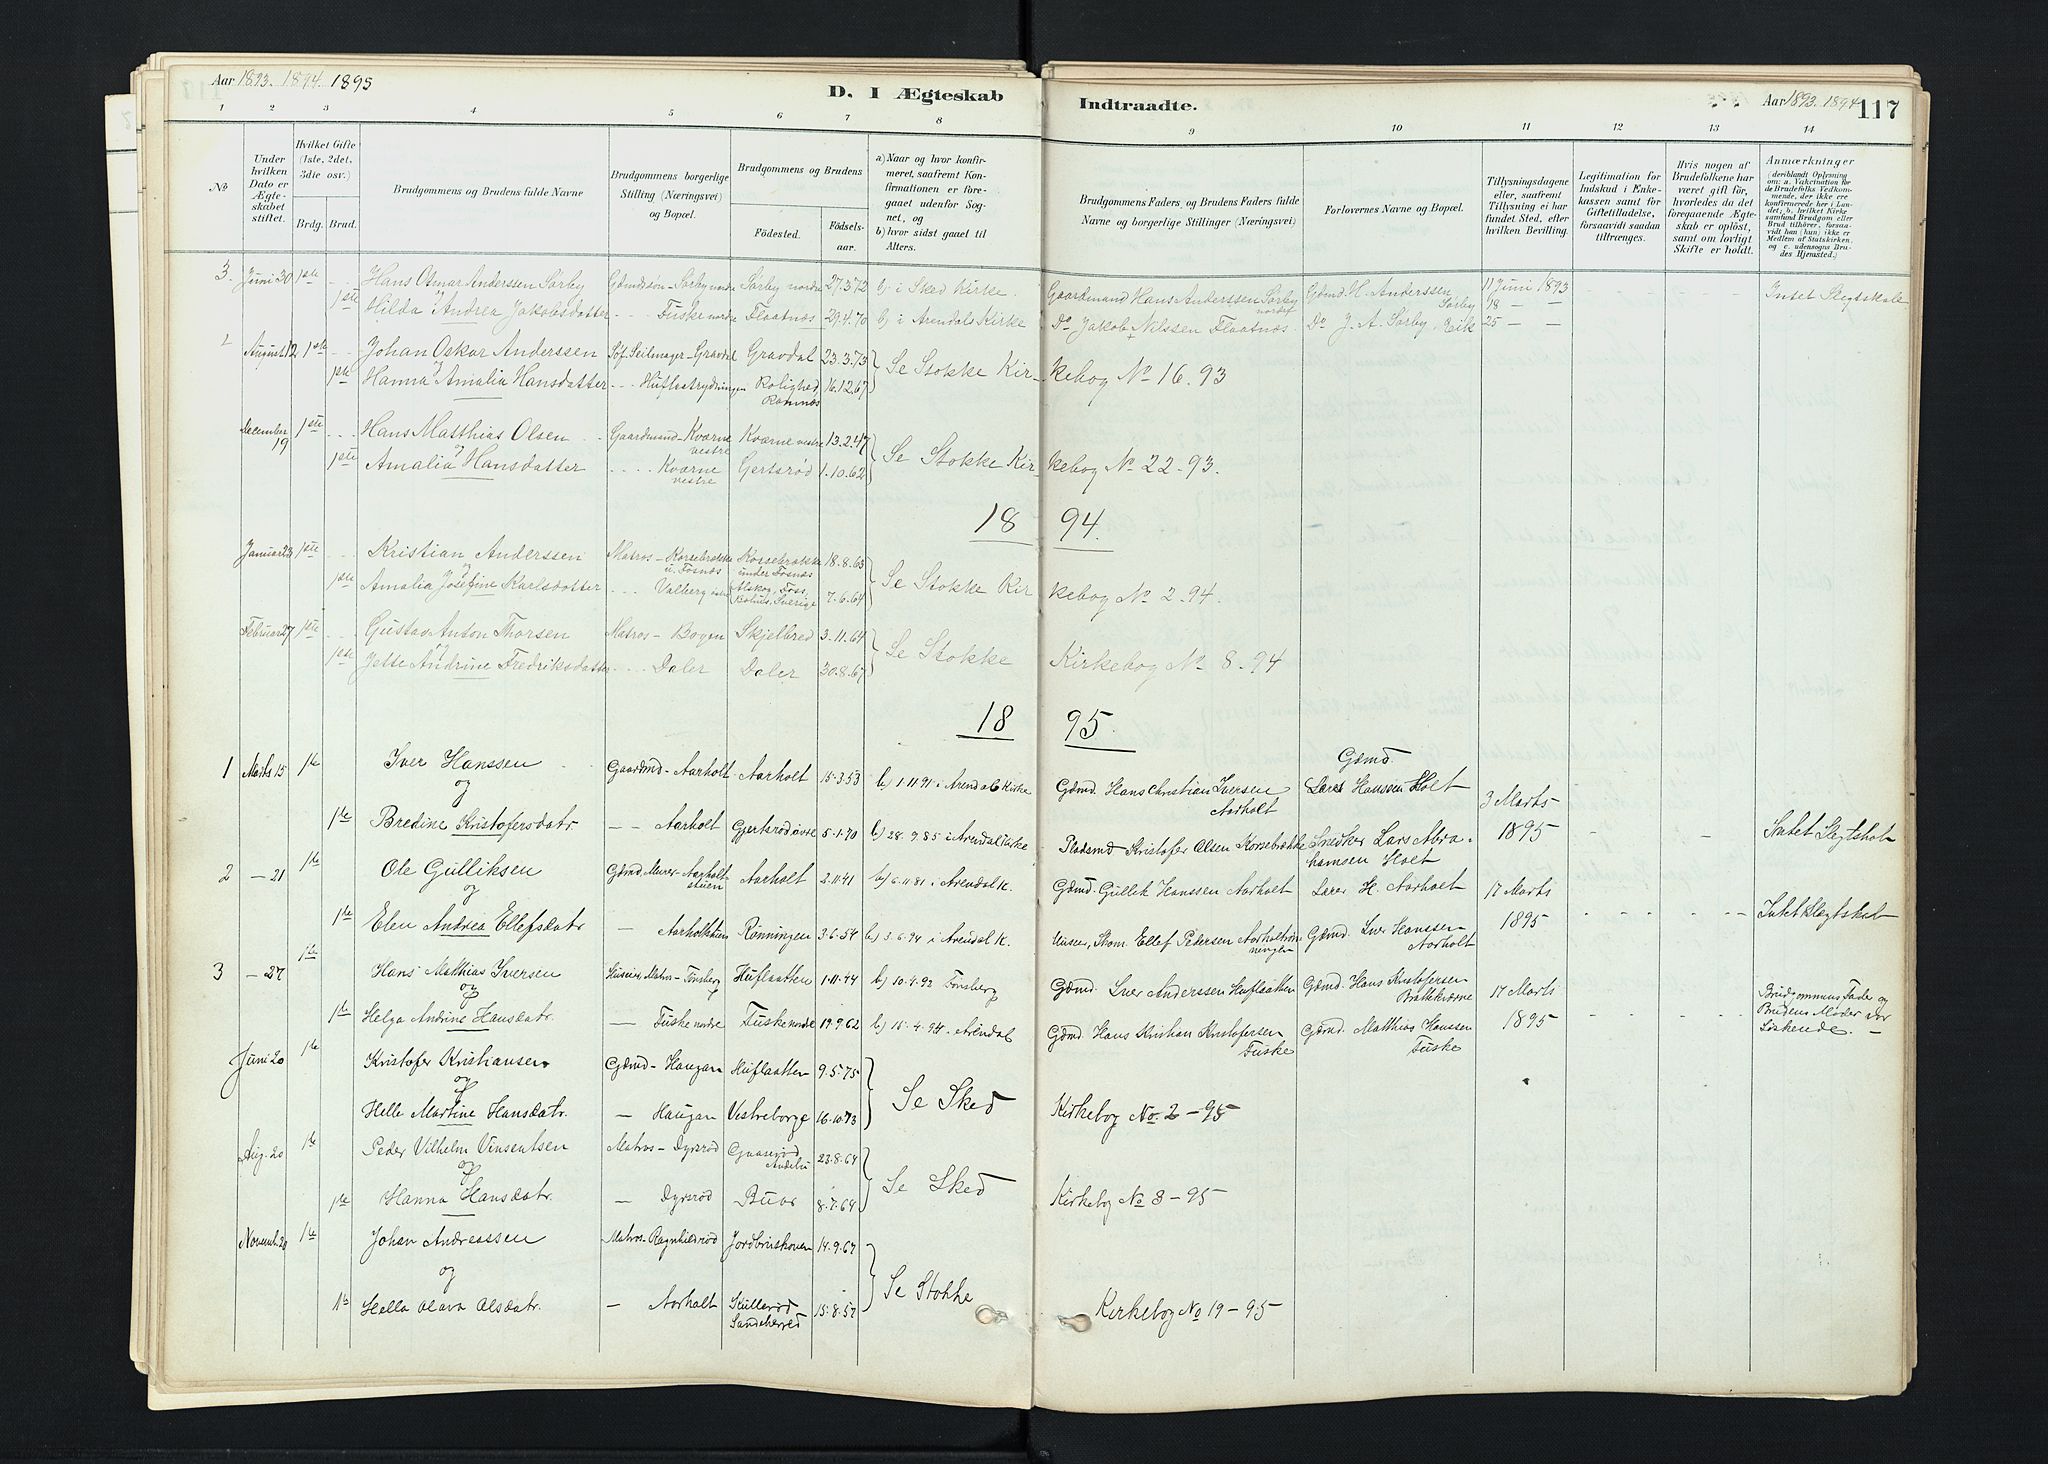 Aar 1893. 1894. 1895
D. I Ægteskab Indtraadte.
Aar 1893. 1894 117
1 2 3 4 5 6 7 8 9 10 11 12 13 14
No
Under hvilken Dato er Ægteskabet stiftet.
Hvilket Gifte (1ste, 2det, 3die osv.)
Brdg. Brud.
Brudgommens og Brudens fulde Navne
Brudgommens borgerlige Stilling (Næringsvei) og Bopæl.
Brudgommens og Brudens
Fødested. Fødselsaar.
a) Naar og hvor konfirmeret, saafremt Konfirmationen er foregaaet udenfor Sognet, og
b) hvor sidst gaaet til Alters.
Brudgommens Faders og Brudens Faders fulde Navne og borgerlige Stillinger (Næringsvei)
Forlovernes Navne og Bopæl.
Tillysningsdagene eller, saafremt Tillysning ei har fundet Sted, efter hvilken Bevilling.
Legitimation for Indskud i Enkekassen samt for Giftetilladelse, forsaavidt saadan tiltrænges.
Hvis nogen af Brudefolkene har været gift før, hvorledes da det foregaaende Ægteskab er opløst, samt om lovligt Skifte er holdt.
Anmærkninger (deriblandt Oplysning om: a. Vakcination for de Brudefolks Vedkommende, der ikke ere konfirmerede her i Landet; b. hvilket Kirkesamfund Brudgom eller Brud tilhører, forsaavidt han (hun) ikke er Medlem af Statskirken, og c. udensogns Brudes Hjemsted.)
3. Juni 30 1ste - - - Hans Osmar Anderssen Sørby Gdmdssøn - Sørby nordre Sørby nordre 27.3.72 b) i Sked Kirke. Gaardmand Hans Anderssen Sørby nordre Gdmd. H. Anderssen Sørby 11 Juni 1893
og
1ste Hilda Andrea Jakobsdatter - - - Fuske nordre Flaatnæs 29.4.70 b) i Arendals Kirke Do Jakob Nilssen Flaatnæs. Do J. A. Sørby, Reik 18 — — 25 — — Intet Slegtskab
August 12 1ste - - - Johan Oskar Anderssen Søf. Seilmager - Gravdal Gravdal 23.3.73
og
1ste Hanna Amalia Hansdatter - - - Huflaatrydningen Rolighed Ramnæs 16.12.67 Se Stokke Kirkebog No 16. 93
December 19 1ste - - - Hans Matthias Olsen - - Gaardmand - Kværne vestre Kværne vestre 13.2.47
og
1ste Amalia Hansdatter - - - - Kværne vestre Gjertsrød 1.10.62 Se Stokke Kirkebog No 22-93.
18 94.
Januar 23 1ste - - - Kristian Anderssen Matros - Korsebrække u. Fosnæs Korsebrække under Fosnæs 18.8.63
og
1ste Amalia Josefine Karlsdatter - - - Valberg østre Alskog, Foss, Bohus, Sverige 7.6.64 Se Stokke Kirkebog No 2. 94.
Februar 27 1ste - - - Gustav Anton Thorsen Matros - Bogen Skjelbred 3.11.64
og
1ste Jette Andrine Fredriksdatter - - - Daler Daler 30.8.67 Se Stokke Kirkebog No 8-94
18 95.
1 Marts 15 1ste Iver Hanssen Gaardmd - Aarholt Aarholt 15.3.53 b) 1.11.91 i Arendals Kirke Gdmd. Hans Christian Iversen Aarholt Gdmd. Lars Hanssen Holt 3 Marts
og
1ste Bredine Kristofersdatr. — — Aarholt Gjertsrød øvre 5.1.70 b) 28.9.85 i Arendal Kirke Pladsmd Kristofer Olsen Korsebrække Snedker Lars Abrahamsen Holt 1895 Intet Slegtskab
2 — 21 1ste Ole Gulliksen Gdmd. Murer - Aarholtstuen Aarholt 2.11.41 b) 6.11.81 i Arendal K. Gdmd. Gullik Hanssen Aarholt Lærer H. Aarholt 17 Marts
og
1ste Elen Andrea Ellefsdatr — Aarholtstuen Rønningen 3.6.54 b) 3.6.94 i Arendal K. Husm., Skom. Ellef Pedersen Aarholtrønningen Gdmd. Iver Hanssen Aarholt 1895 Intet Slegtskab
3 — 27 1ste Hans Matthias Iversen Matros - Tønsberg Huflaatten 1.11.44 b) 10.4.92 Tønsberg Gdmd. Iver Anderssen Huflaatten Gdmd. Hans Kristofersen Brattekværne 17 Marts Brudgommens Fader og Brudens Moder var Søskende. —
og
1ste Helga Andrine Hansdatr. — Fuske nodre Fuske nodre 19.9.62 b) 15.4.94. Arendal Gdmd. Hans Kristian Kristofersen Fuske Gdmd. Matthias Hanssen Fuske 1895
Juni 20 1ste Kristofer Kristiansen Gdmd - Haugan Huflaatten 9.5.75
og
Helle Martine Hansdatr. — Haugan Vestreborge 16.10.73 Se Sked Kirkebog No. 2 - 95
Aug. 20 1ste Peder Vilhelm Vinsentsen Matros - Dyrsrød Gaaserød Andebu 23.8.64
og
1ste Hanna Hansdatr. — Dyrsrød Buar 8.7.64 Se Sked Kirkebog No 3 - 95
Novemb. 20 1ste Johan Andreassen Matros - Ragnhildrød Jordbruskoven 14.9.67
og
1ste Hella Olava Olsdatr. — Aarholt Skillerød Sandeherred 15.8.57 Se Stokke Kirkebog No 19 - 95